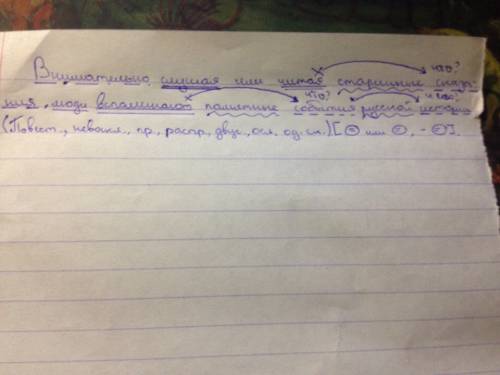 что?
Внимательно слушая или читая старинные сказа-
ния, люди вспоминают памятные события русской истории
что? чего?
(Повест., невоскл., пр., распр., двус., осл. од.сл.) [O или O, - =].